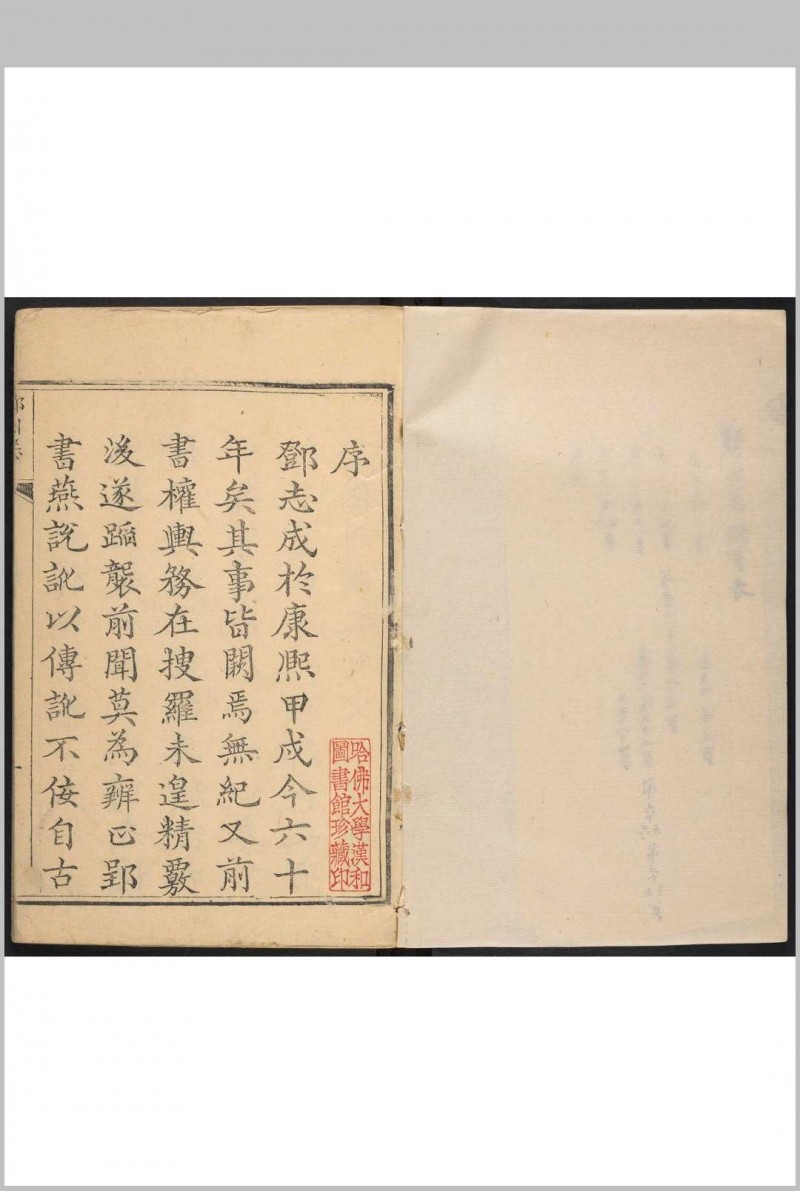 序
鄧志成於康熈甲戍今六十
年矣其事皆闕焉無紀又前
書權輿務在搜羅未遑精覈
後遂蹈襲前聞莫為辨正郢
書燕說訛以傳訛不侫自古
哈佛大學漢和
圖書館珍藏印